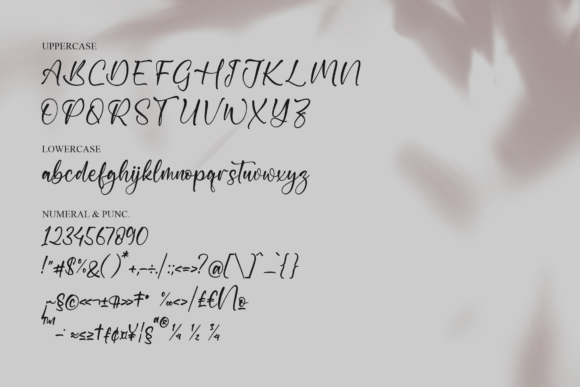 UPPERCASE
ABCDEFGHIJKLMN
OPQRSTUVWXYZ
LOWERCASE
abcdefghijklmnopqrstuvwxyz
NUMERAL & PUNC.
1234567890
!"#$%&()*+,-÷./:;<=>?@[\]^_`{}
¡~§©«¬±¶»‡• ‰<>/£€№
™–· ≈≤≥†ƒ¢¤¥¦§ª®¼ ½ ¾